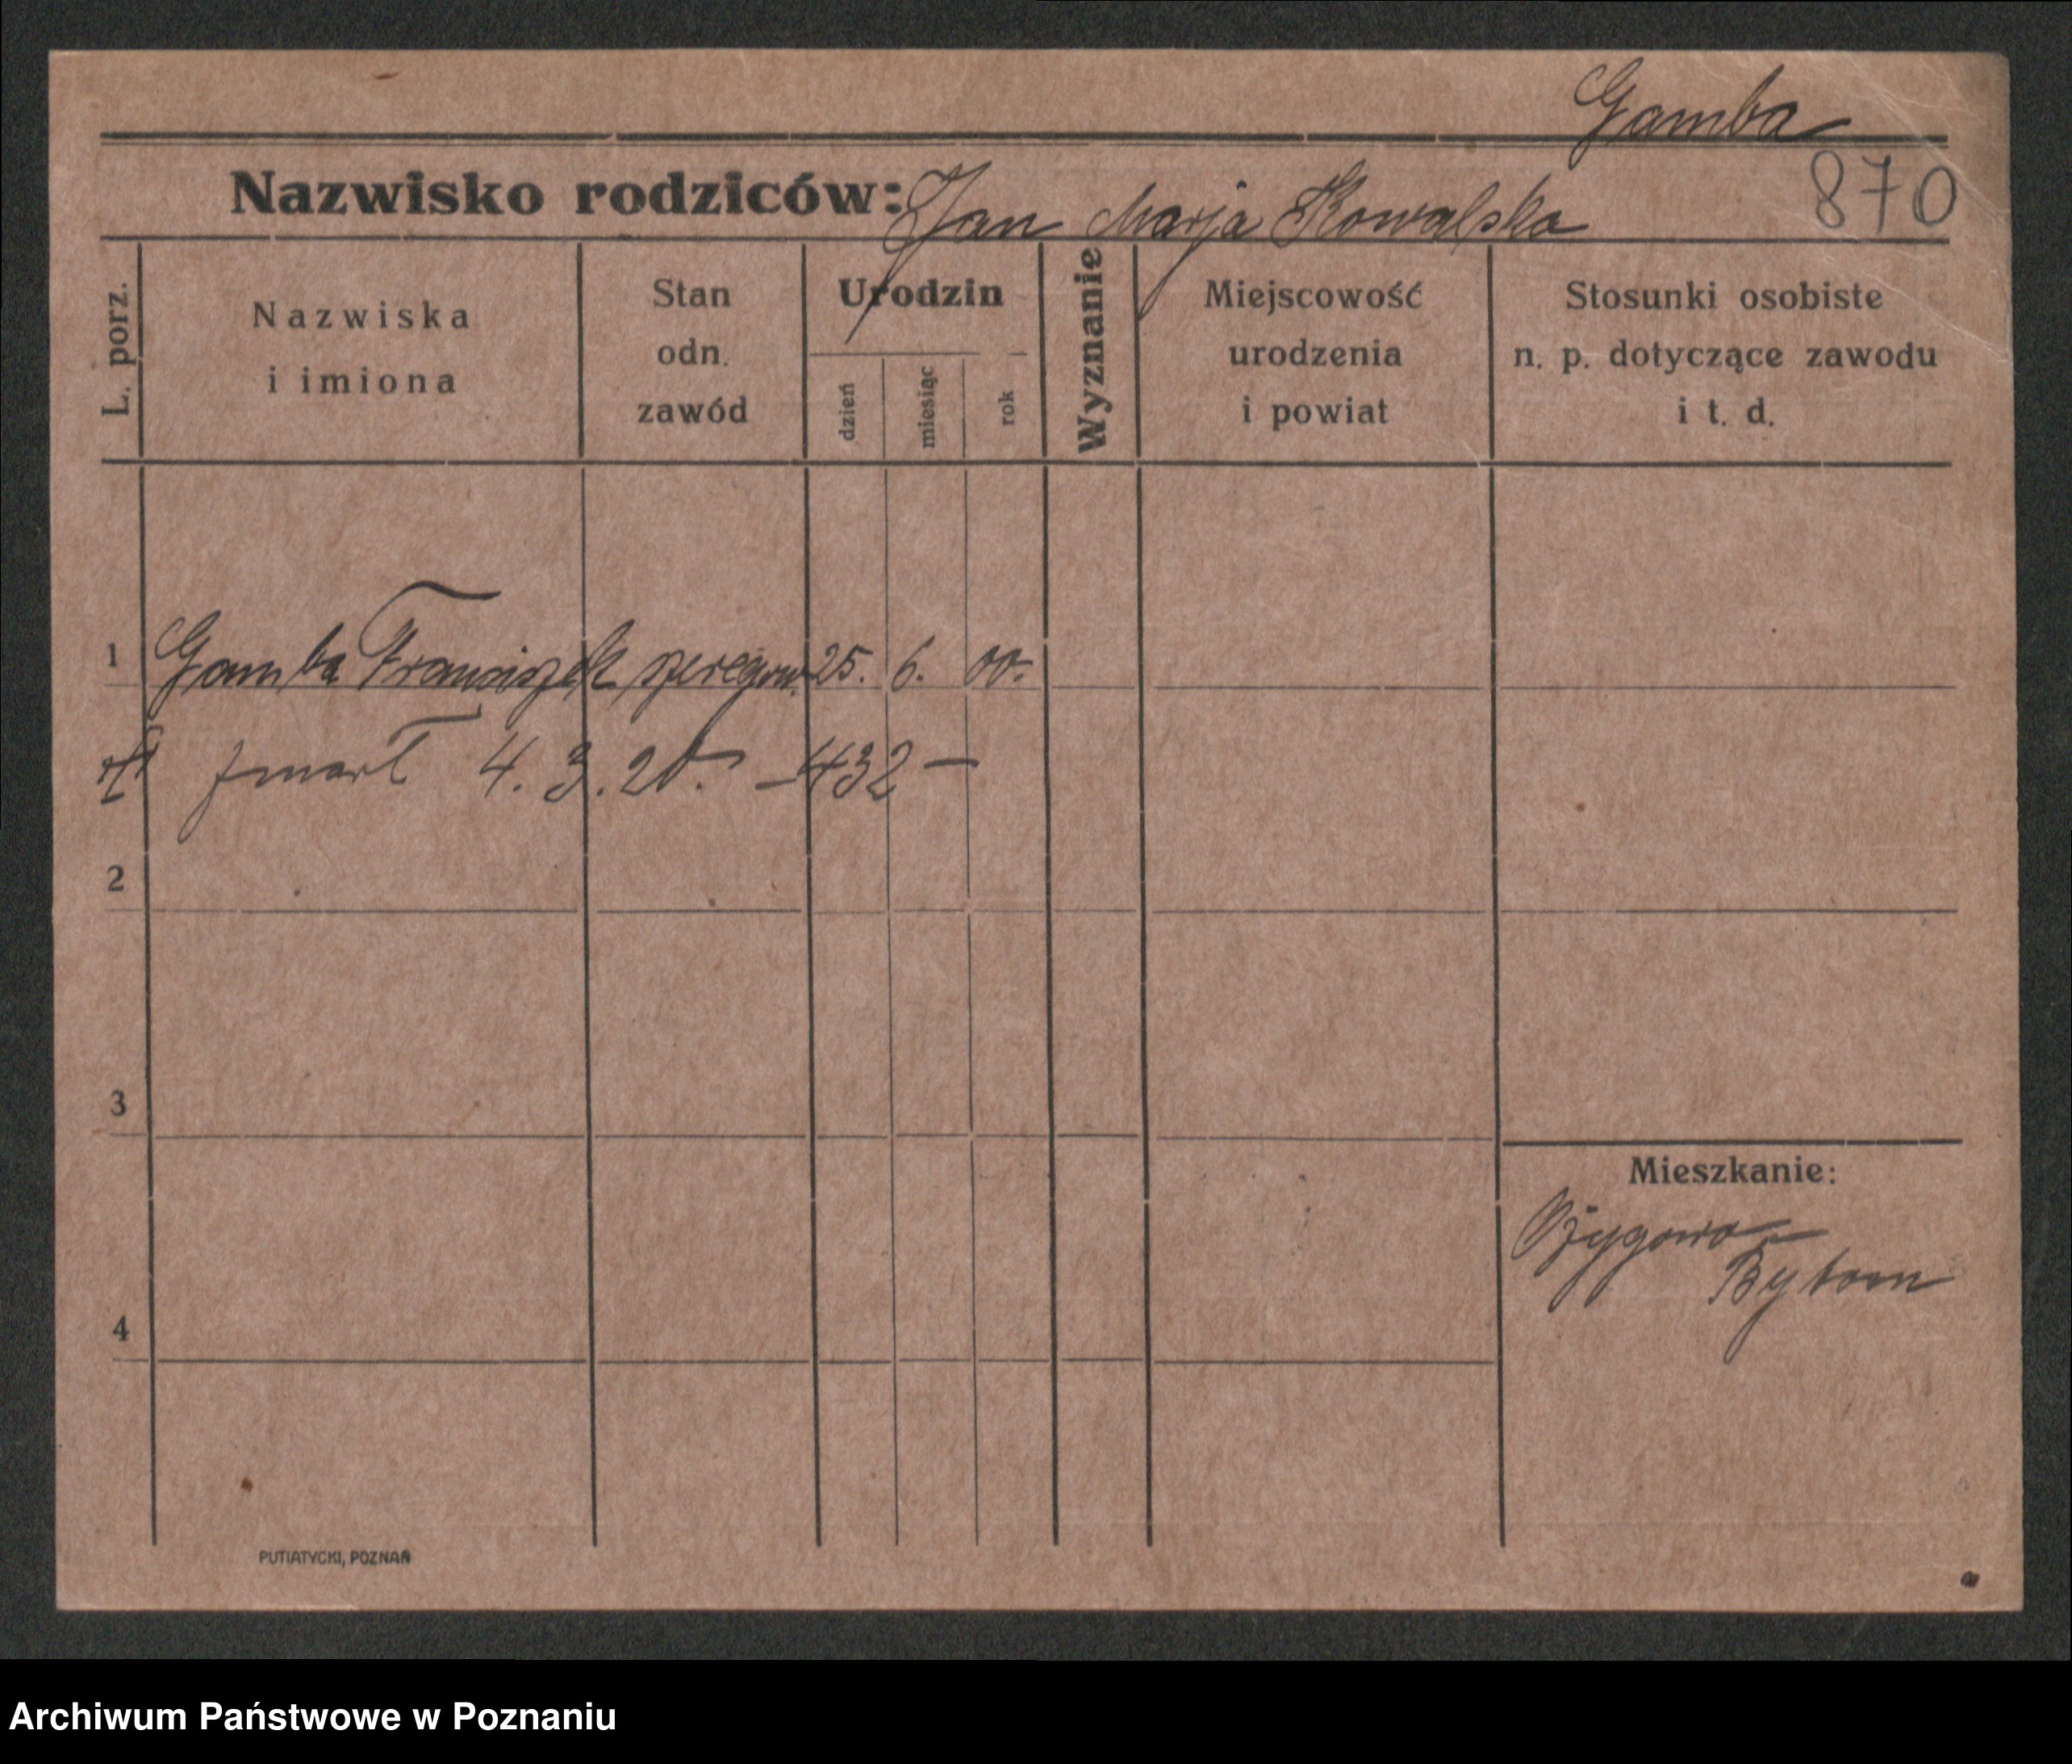 Gamba
870
Nazwisko rodziców: Jan Marja Kowalska
L. porz.
Nazwiska
i imiona
Stan
odn.
zawód
Urodzin
dzień
miesiąc
rok
Wyznanie
Miejscowość
urodzenia
i powiat
Stosunki osobiste
n. p. dotyczące zawodu
i t. d.
1 Gamba Franciszek szeregow. 25. 6. 00.
zmarł 4. 3. 20. – 432 –
2
3
4
Mieszkanie:
Bytom
PUTIATYCKI, POZNAŃ
Archiwum Państwowe w Poznaniu